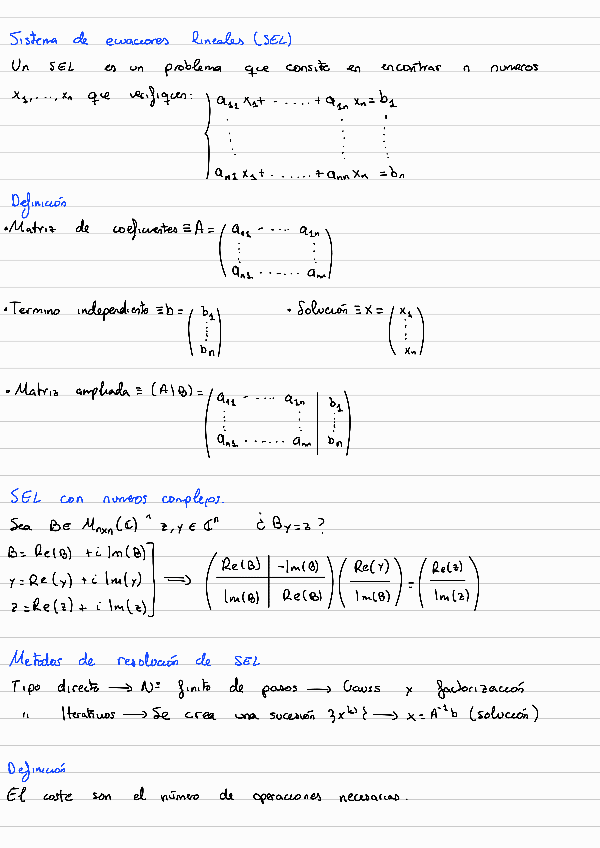 Sistema de ecuaciones lineales (SEL)
Un SEL es un problema que consite en encontrar n numeros
x₁,...,xₙ que verifiquen: { a₁₁ x₁+ ...... + a₁ₙ xₙ = b₁
aₙ₁ x₁+ ...... + aₙₙ xₙ = bₙ
Definición
• Matriz de coeficientes ≡ A = ( a₁₁ ---- a₁ₙ
aₙ₁ ------ aₙₙ )
• Termino independiente ≡ b = ( b₁ ⋮ bₙ ) • Solución ≡ x = ( x₁ ⋮ xₙ )
• Matriz ampliada ≡ (A|B) = ( a₁₁ ---- a₁ₙ | b₁
aₙ₁ ------ aₙₙ | bₙ )
SEL con numeros complejos.
Sea B∈ Mₙₓₙ(ℂ) ^ z,y ∈ ℂⁿ ¿ By=z ?
B= Re(B) + i Im(B)
y= Re(y) + i Im(y) ] ⟹ ( Re(B) | -Im(B) ) ( Re(y) ) = ( Re(z) )
z= Re(z) + i Im(z) ( Im(B) | Re(B) ) ( Im(B) ) ( Im(z) )
Metodos de resolución de SEL
Tipo directo → Nº finito de pasos → Gauss y factorización
" Iterativos → Se crea una sucesión {x⁽ᵏ⁾} → x = A⁻¹b (solución)
Definición
El coste son el número de operaciones necesarias.